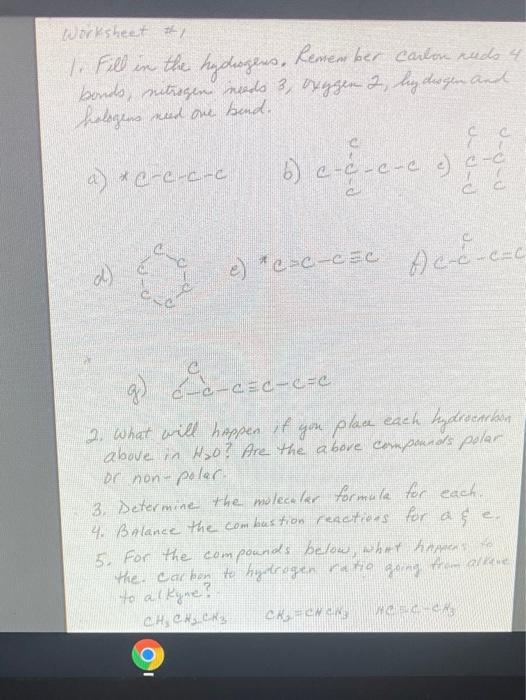 Worksheet #1
1. Fill in the hydrogens. Remember carbon needs 4
bonds, nitrogen needs 3, oxygen 2, hydrogen and
halogens need one bond.
a) *C-C-C-C b) C-C-C-C c) C-C
C C C
C C C
d) C C C C C C e) *C=C-C≡C f) C-C-C=C
C
g) C-C-C≡C-C=C
C
2. What will happen if you place each hydrocarbon
above in H2O? Are the above compounds polar
or non-polar.
3. Determine the molecular formula for each.
4. Balance the combustion reactions for a & e.
5. For the compounds below, what happens to
the carbon to hydrogen ratio going from alkane
to alkyne?
CH3CH2CH3 CH2=CHCH3 HC≡C-CH3